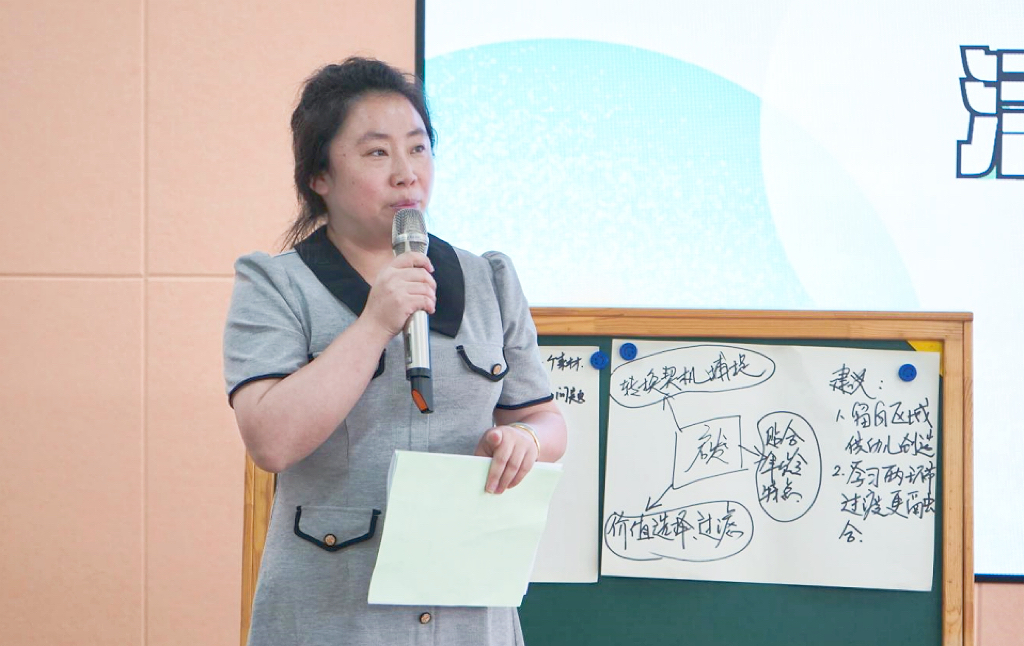 活
个素材.
问题
转换契机捕捉
启发
贴合
年龄
特点.
价值选择、过滤
建议:
1. 留白区域
供幼儿创造
2. 学习两环节
过渡更融
合.